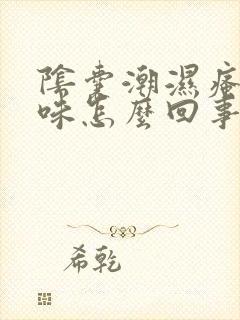 陰囊潮濕瘙
味怎麼回事
希乾